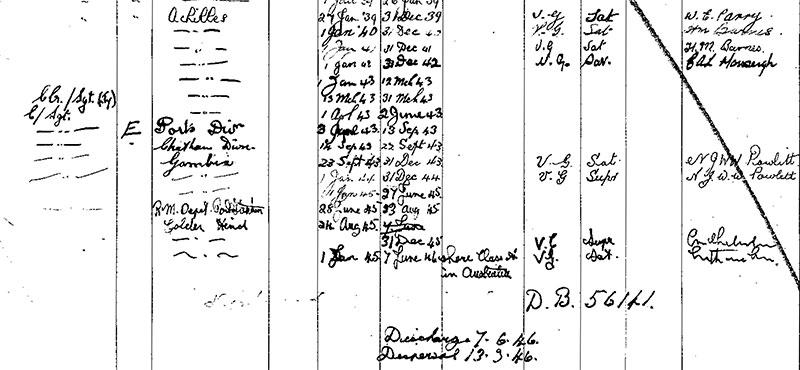 Achilles 27 Jan '39 31 Dec 39 V.G Sat W. E. Parry
1 Jan '40 31 Dec 40 V.G. Sat
Jan 41 31 Dec 41 V.G Sat H.M. Barnes.
1 Jan 42 31 Dec 42 V.G. Sat.
1 Jan 43 12 Mch 43
13 Mch 43 31 Mch 43
Clr./Sgt. (Ty) 1 Apl 43 2 June 43
C/Sgt. E Ports Divn 3 June 43 13 Sep 43
Chatham Divn 14 Sep 43 22 Sept 43
Gambia 23 Sept 43 31 Dec 43 V.G. Sat N J W W Pawlett
1 Jan 44 31 Dec 44 V.G Supr N. J. W. W Pawlett
1 Jan 45 27 June 45
R.M. Depot 28 June 45 23 Aug 45
Golden Hind 24 Aug 45 4 June
31 Dec 45 V.G Supr
1 Jan 45 7 June 46 Class A V.G. Sat.
in Australia
D.B. 56141.
Discharge 7. 6. 46.
Dispersal 13. 9. 46.